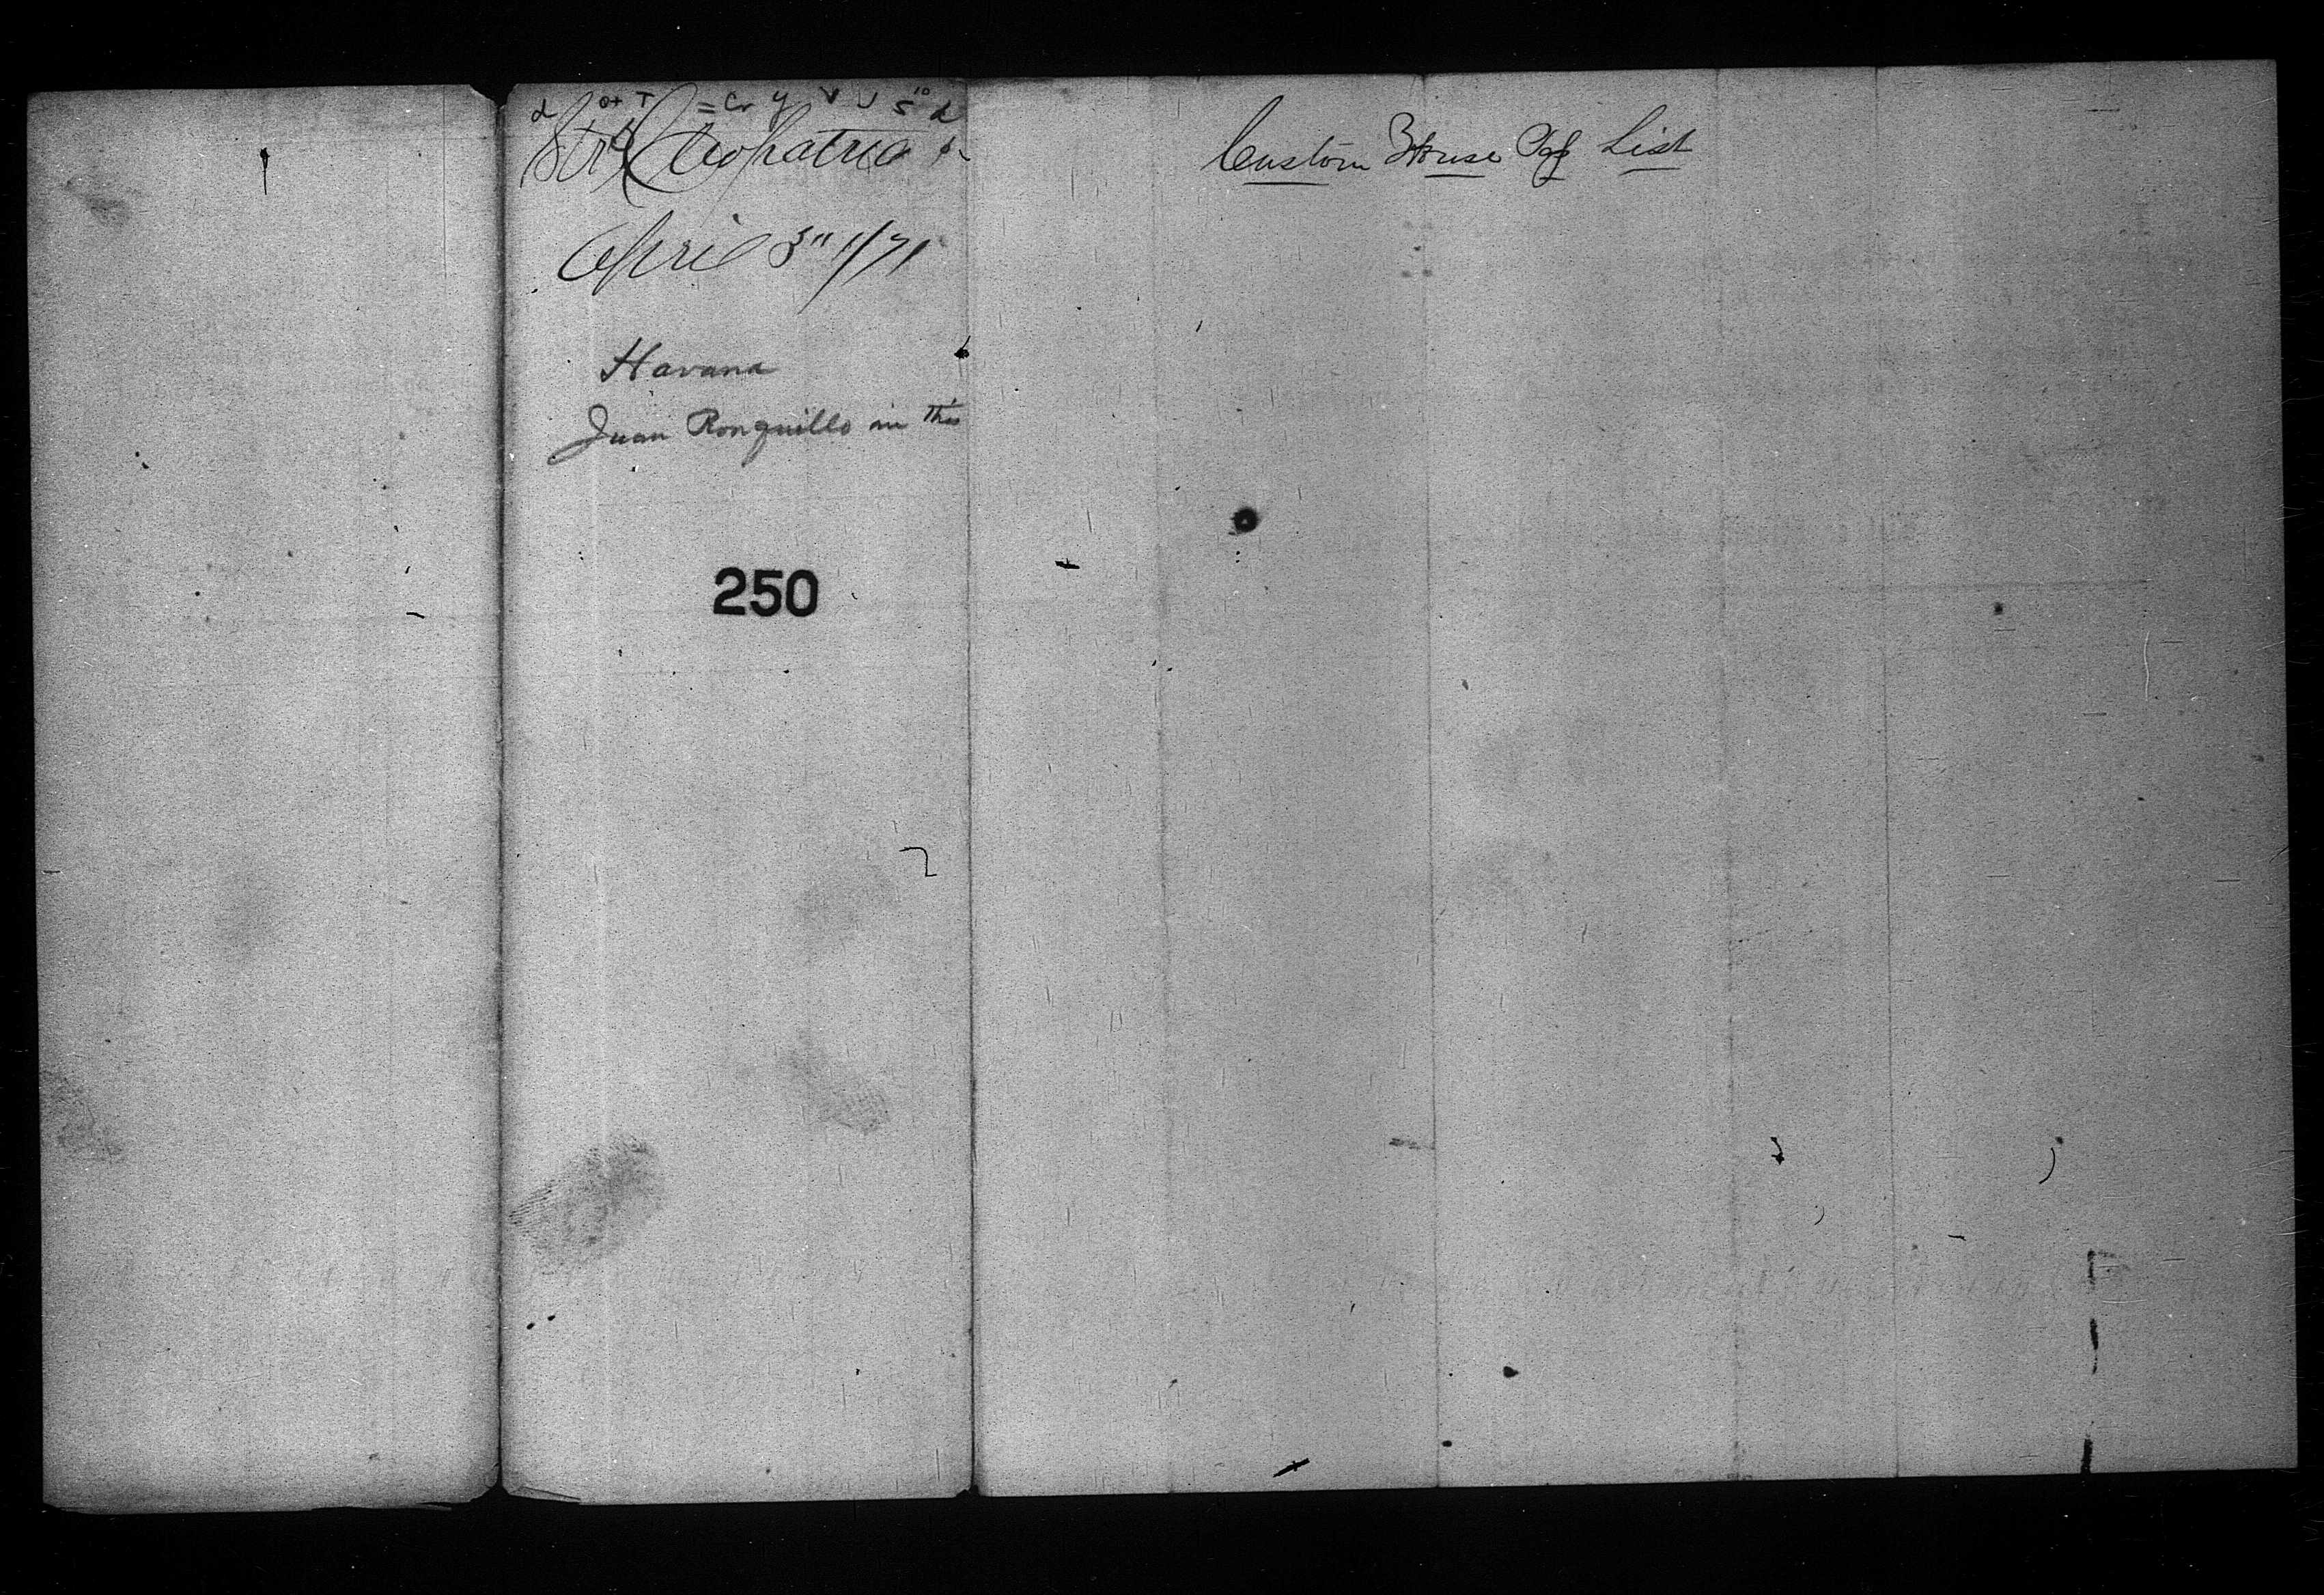 Str Cleopatra
April 3" 1/71
Havana
Juan Ronquillo in this
250
Custom House List